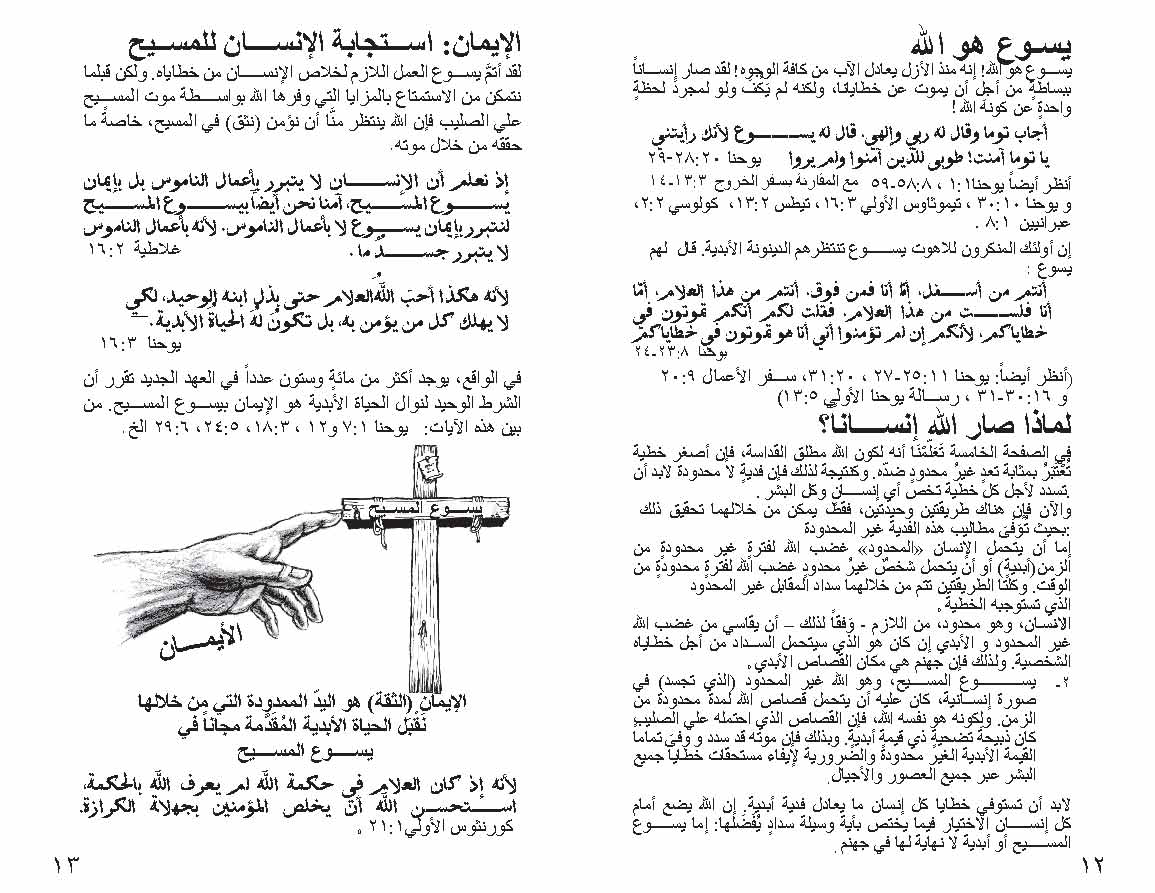 يسوع هو الله
يسوع هو الله! إنه منذ الأزل يعادل الآب من كافة الوجوه! لقد صار إنساناً
ببساطةٍ من أجل أن يموت عن خطايانا، ولكنه لم يَكُف ولو لمجردِ لحظةٍ
واحدةٍ عن كونهِ الله !
أجاب توما وقال له ربي وإلهي. قال له يسوع لأنك رأيتني
يا توما آمنت! طوبى للذين آمنوا ولم يروا يوحنا ٢٠:٢٨-٢٩
أنظر أيضاً يوحنا١:١ ، ٨:٥٨-٥٩ مع المقارنة بسفر الخروج ٣:١٣-١٤
و يوحنا ١٠:٣٠ ، تيموثاوس الأولي ٣:١٦، تيطس ٢:١٣، كولوسي ٢:٢،
عبرانيين ١:٨ .
إن أولئك المنكرون للاهوت يسوع تنتظرهم الدينونة الأبدية. قال لهم
يسوع :
أنتم من أسفل، أمَّا أنا فمن فوق. أنتم من هذا العالم، أمّا
أنا فلست من هذا العالم. فقلت لكم أنكم تموتون في
خطاياكم، لأنكم إن لم تؤمنوا أني أنا هو تموتون في خطاياكم
يوحنا ٨:٢٣-٢٤
(أنظر أيضاً: يوحنا ١١:٢٥-٢٧ ، ٢٠:٣١، سفر الأعمال ٩:٢٠
و ١٦:٣٠-٣١ ، رسالة يوحنا الأولي ٥:١٣)
لماذا صار الله إنساناً؟
في الصفحة الخامسة تَعَلَّمْنَا أنه لكون الله مطلق القداسة، فإن أصغر خطية
تُعْتَبَرُ بمثابة تعدٍ غيرُ محدودٍ ضدّه. وكنتيجة لذلك فإن فديةٍ لا محدودة لابد أن
تسدد لأجل كل خطية تخص أي إنسانٍ وكل البشر .
والآن فإن هناك طريقتين وحيدتين، فقط يمكن من خلالهما تحقيق ذلك
بحيث تُوَفىَ مطاليب هذه الفدية غير المحدودة:
إما أن يتحمل الإنسان «المحدود» غضب الله لفترةٍ غير محدودةٍ من
الزمن(أبدية) أو أن يتحمل شخصٌ غيرُ محدودٍ غضب الله لفترةٍ محدودةٍ من
الوقت. وكلتا الطريقتين تتم من خلالهما سداد المقابل غير المحدود
الذي تستوجبه الخطية .
الانسان، وهو محدود، من اللازم - وَفقاً لذلك – أن يقاسي من غضب الله
غير المحدود و الأبدي إن كان هو الذي سيتحمل السداد من أجل خطاياه
الشخصية. ولذلك فإن جهنم هي مكان القصاص الأبدي .
٢- يسوع المسيح، وهو الله غير المحدود (الذي تجسد) في
صورة إنسانية، كان عليه أن يتحمل قصاص الله لمدةٍ محدودة من
الزمن. ولكونه هو نفسه الله، فإن القصاص الذي احتمله علي الصليب
كان ذبيحة تضحيةٍ ذي قيمةٍ أبديةٍ. وبذلك فإن موته قد سدد و وفىَ تماماً
القيمة الأبدية الغير محدودة والضرورية لإيفاء مستحقات خطايا جميع
البشر عبر جميع العصور والأجيال.
لابد أن تستوفي خطايا كل إنسان ما يعادل فدية أبدية. إن الله يضع أمام
كل إنسان الاختيار فيما يختص بأية وسيلة سدادٍ يُفَضِلَها: إما يسوع
المسيح أو أبدية لا نهاية لها في جهنم .
١٢
الإيمان: استجابة الإنسان للمسيح
لقد أتمَّ يسوع العمل اللازم لخلاص الإنسان من خطاياه. ولكن قبلما
نتمكن من الاستمتاع بالمزايا التي وفرها الله بواسطة موت المسيح
علي الصليب فإن الله ينتظر منَّا أن نؤمن (نثق) في المسيح، خاصةً ما
حققه من خلال موته.
إذ نعلم أن الإنسان لا يتبرر بأعمال الناموس بل بإيمان
يسوع المسيح، آمنا نحن أيضاً بيسوع المسيح
لنتبرر بإيمان يسوع لا بأعمال الناموس. لأنه بأعمال الناموس
لا يتبرر جسدٌ ما. غلاطية ٢:١٦
لأنه هكذا أحبَ اللهُ العالم حتى بذل ابنه الوحيد، لكي
لا يهلك كل من يؤمن به، بل تكونُ لهُ الحياةُ الأبدية.
يوحنا ٣:١٦
في الواقع، يوجد أكثر من مائةٍ وستون عدداً في العهد الجديد تقرر أن
الشرط الوحيد لنوال الحياة الأبدية هو الإيمان بيسوع المسيح. من
بين هذه الآيات: يوحنا ١:٧ و١٢ ، ٣:١٨، ٥:٢٤، ٦:٢٩ الخ.
يسوع المسيح
الأيمان
الإيمان (الثقة) هو اليدّ الممدودة التي من خلالها
نَقْبَل الحياة الأبدية المُقَدَّمة مجاناً في
يسوع المسيح
لأنه إذ كان العالم في حكمة الله لم يعرف الله بالحكمة،
استحسن الله أن يخلص المؤمنين بجهالة الكرازة.
كورنثوس الأولي١:٢١ .
١٣